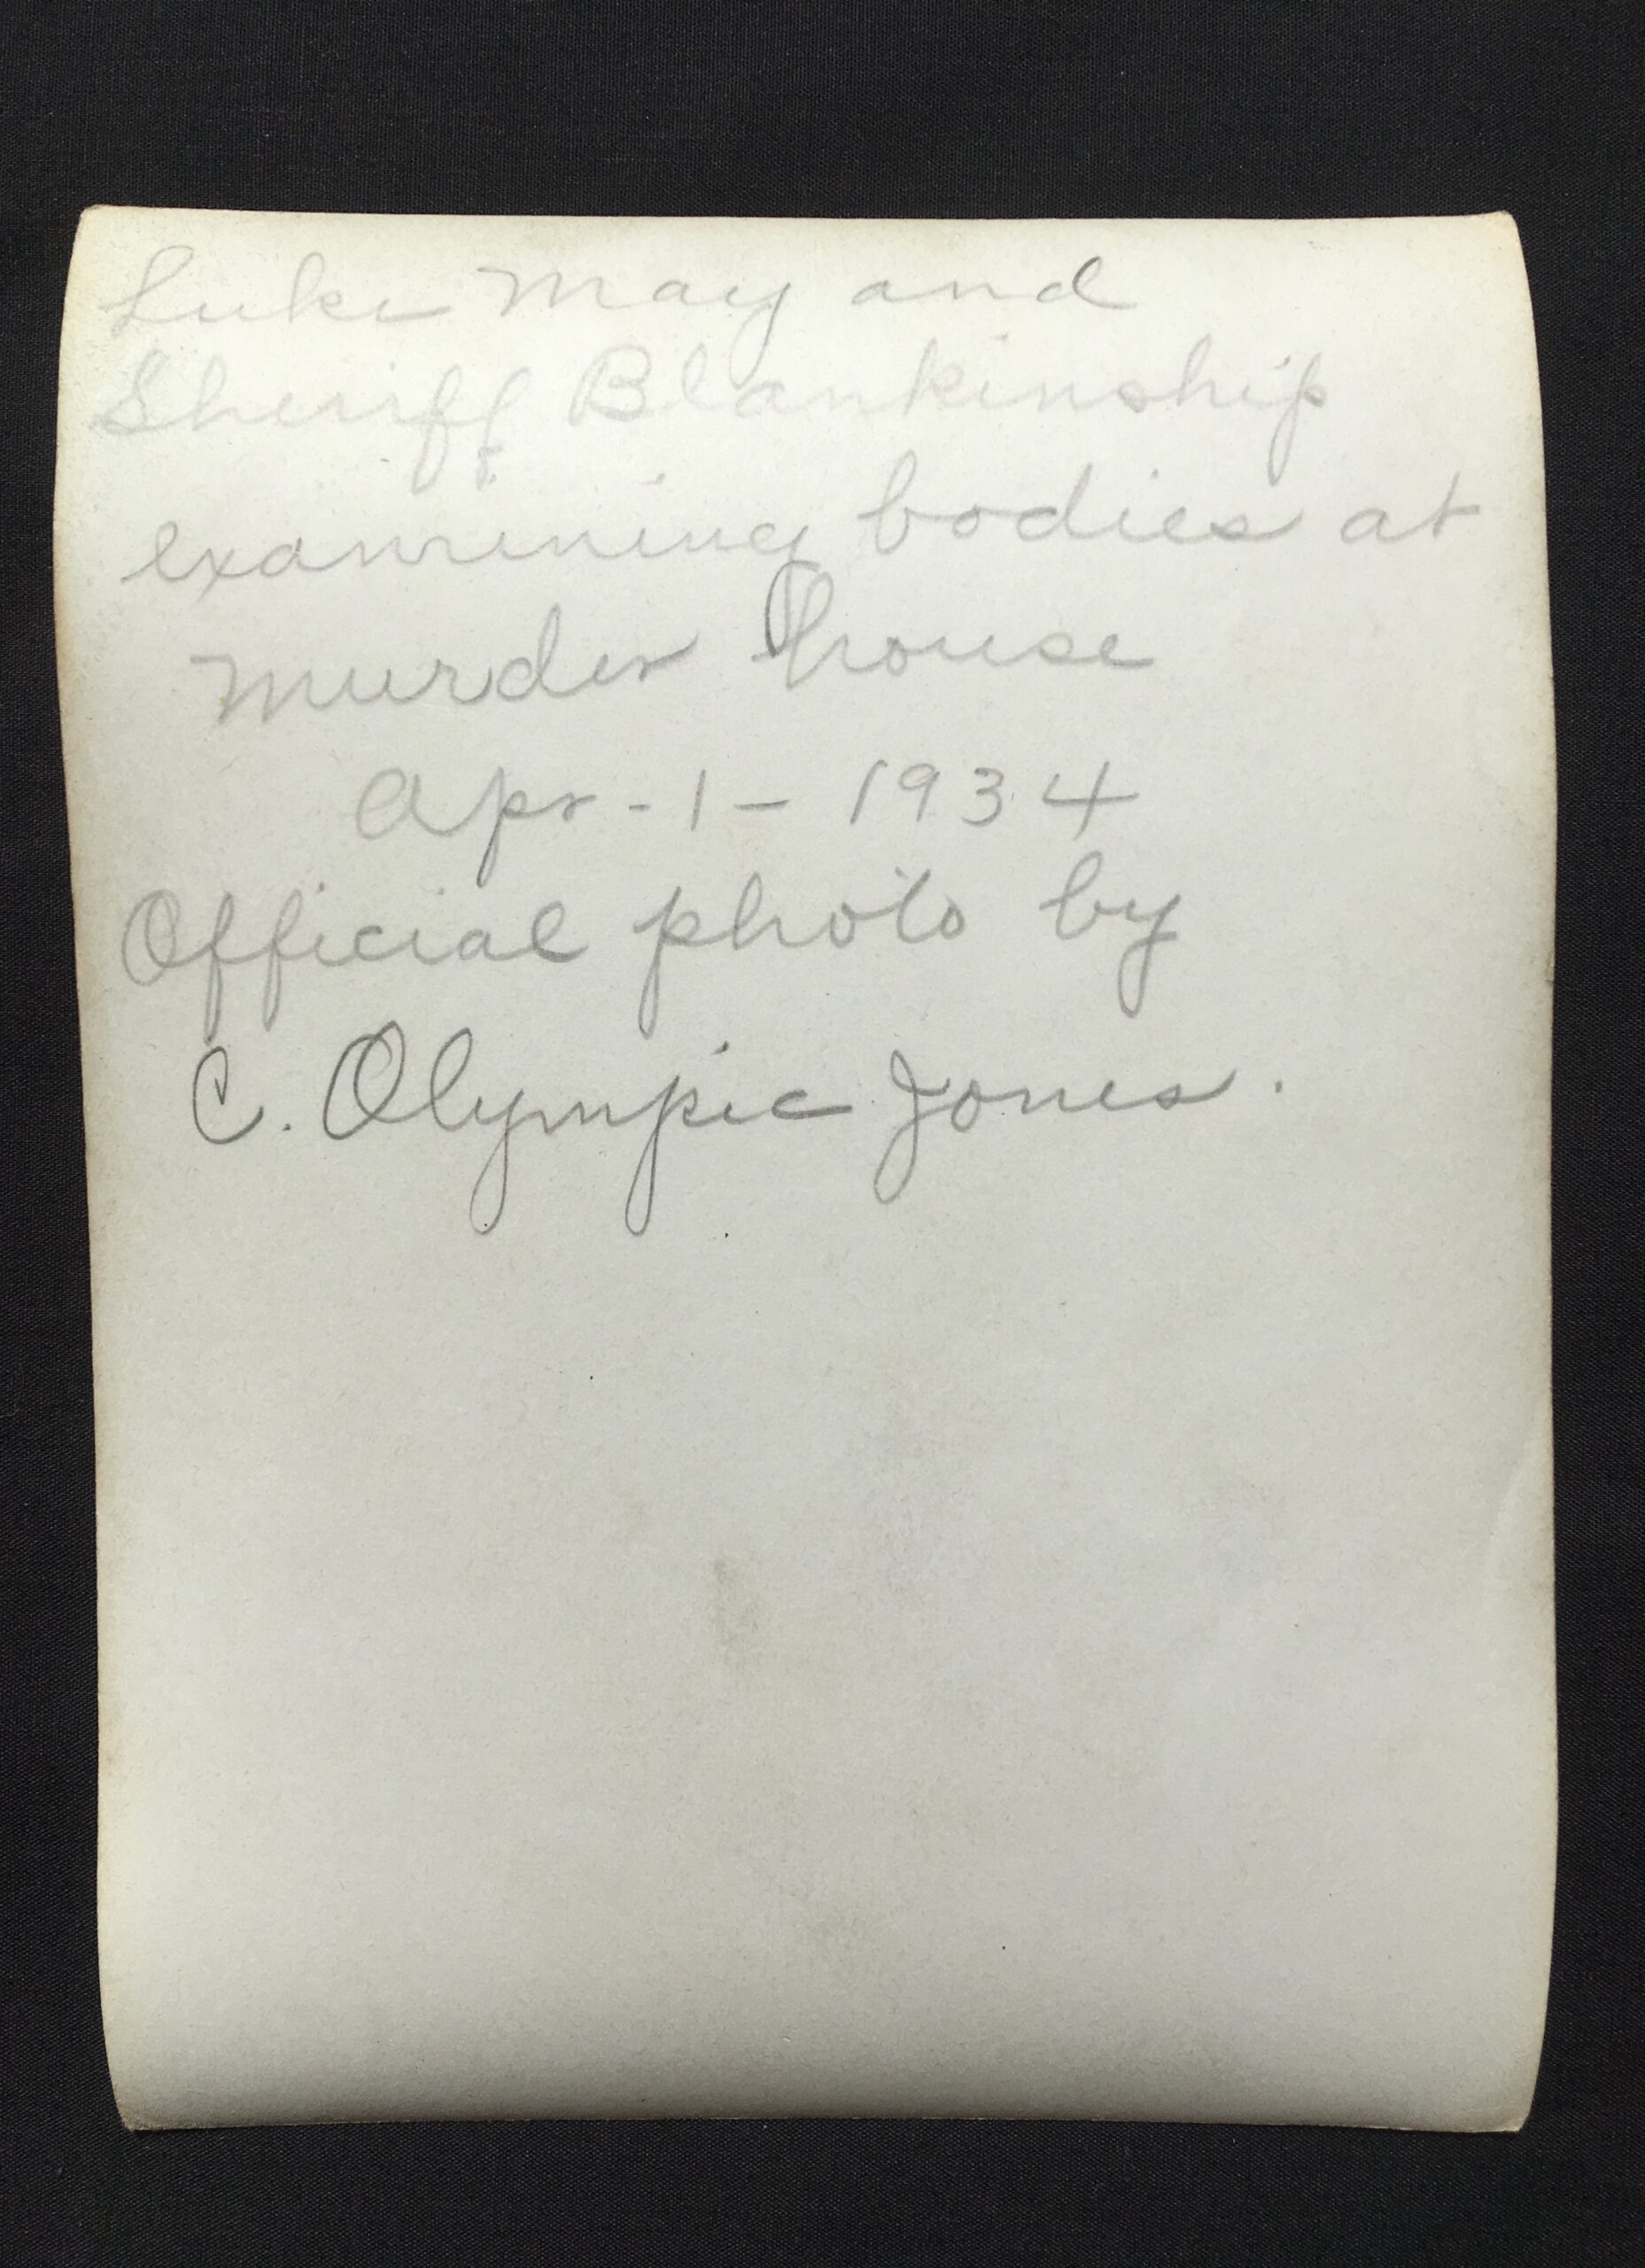 Luke May and
Sheriff Blankinship
examining bodies at
murder house
Apr - 1 - 1934
Official photo by
C. Olympic Jones.